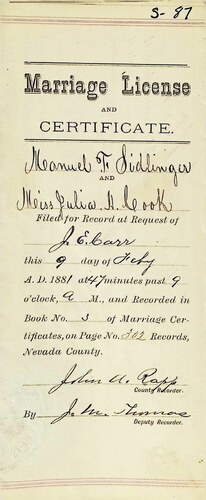 S-87
Marriage License
AND
CERTIFICATE.
Manuel F. Sidlinger
AND
Miss Julia A. Cook
Filed for Record at Request of
J. E. Carr
this 9 day of Feby
A. D. 1881 at 47 minutes past 9
o'clock, A M., and Recorded in
Book No. 3 of Marriage Cer-
tificates, on Page No. 302 Records,
Nevada County.
John A. Rapp
County Recorder.
By J. M. Thomas
Deputy Recorder.